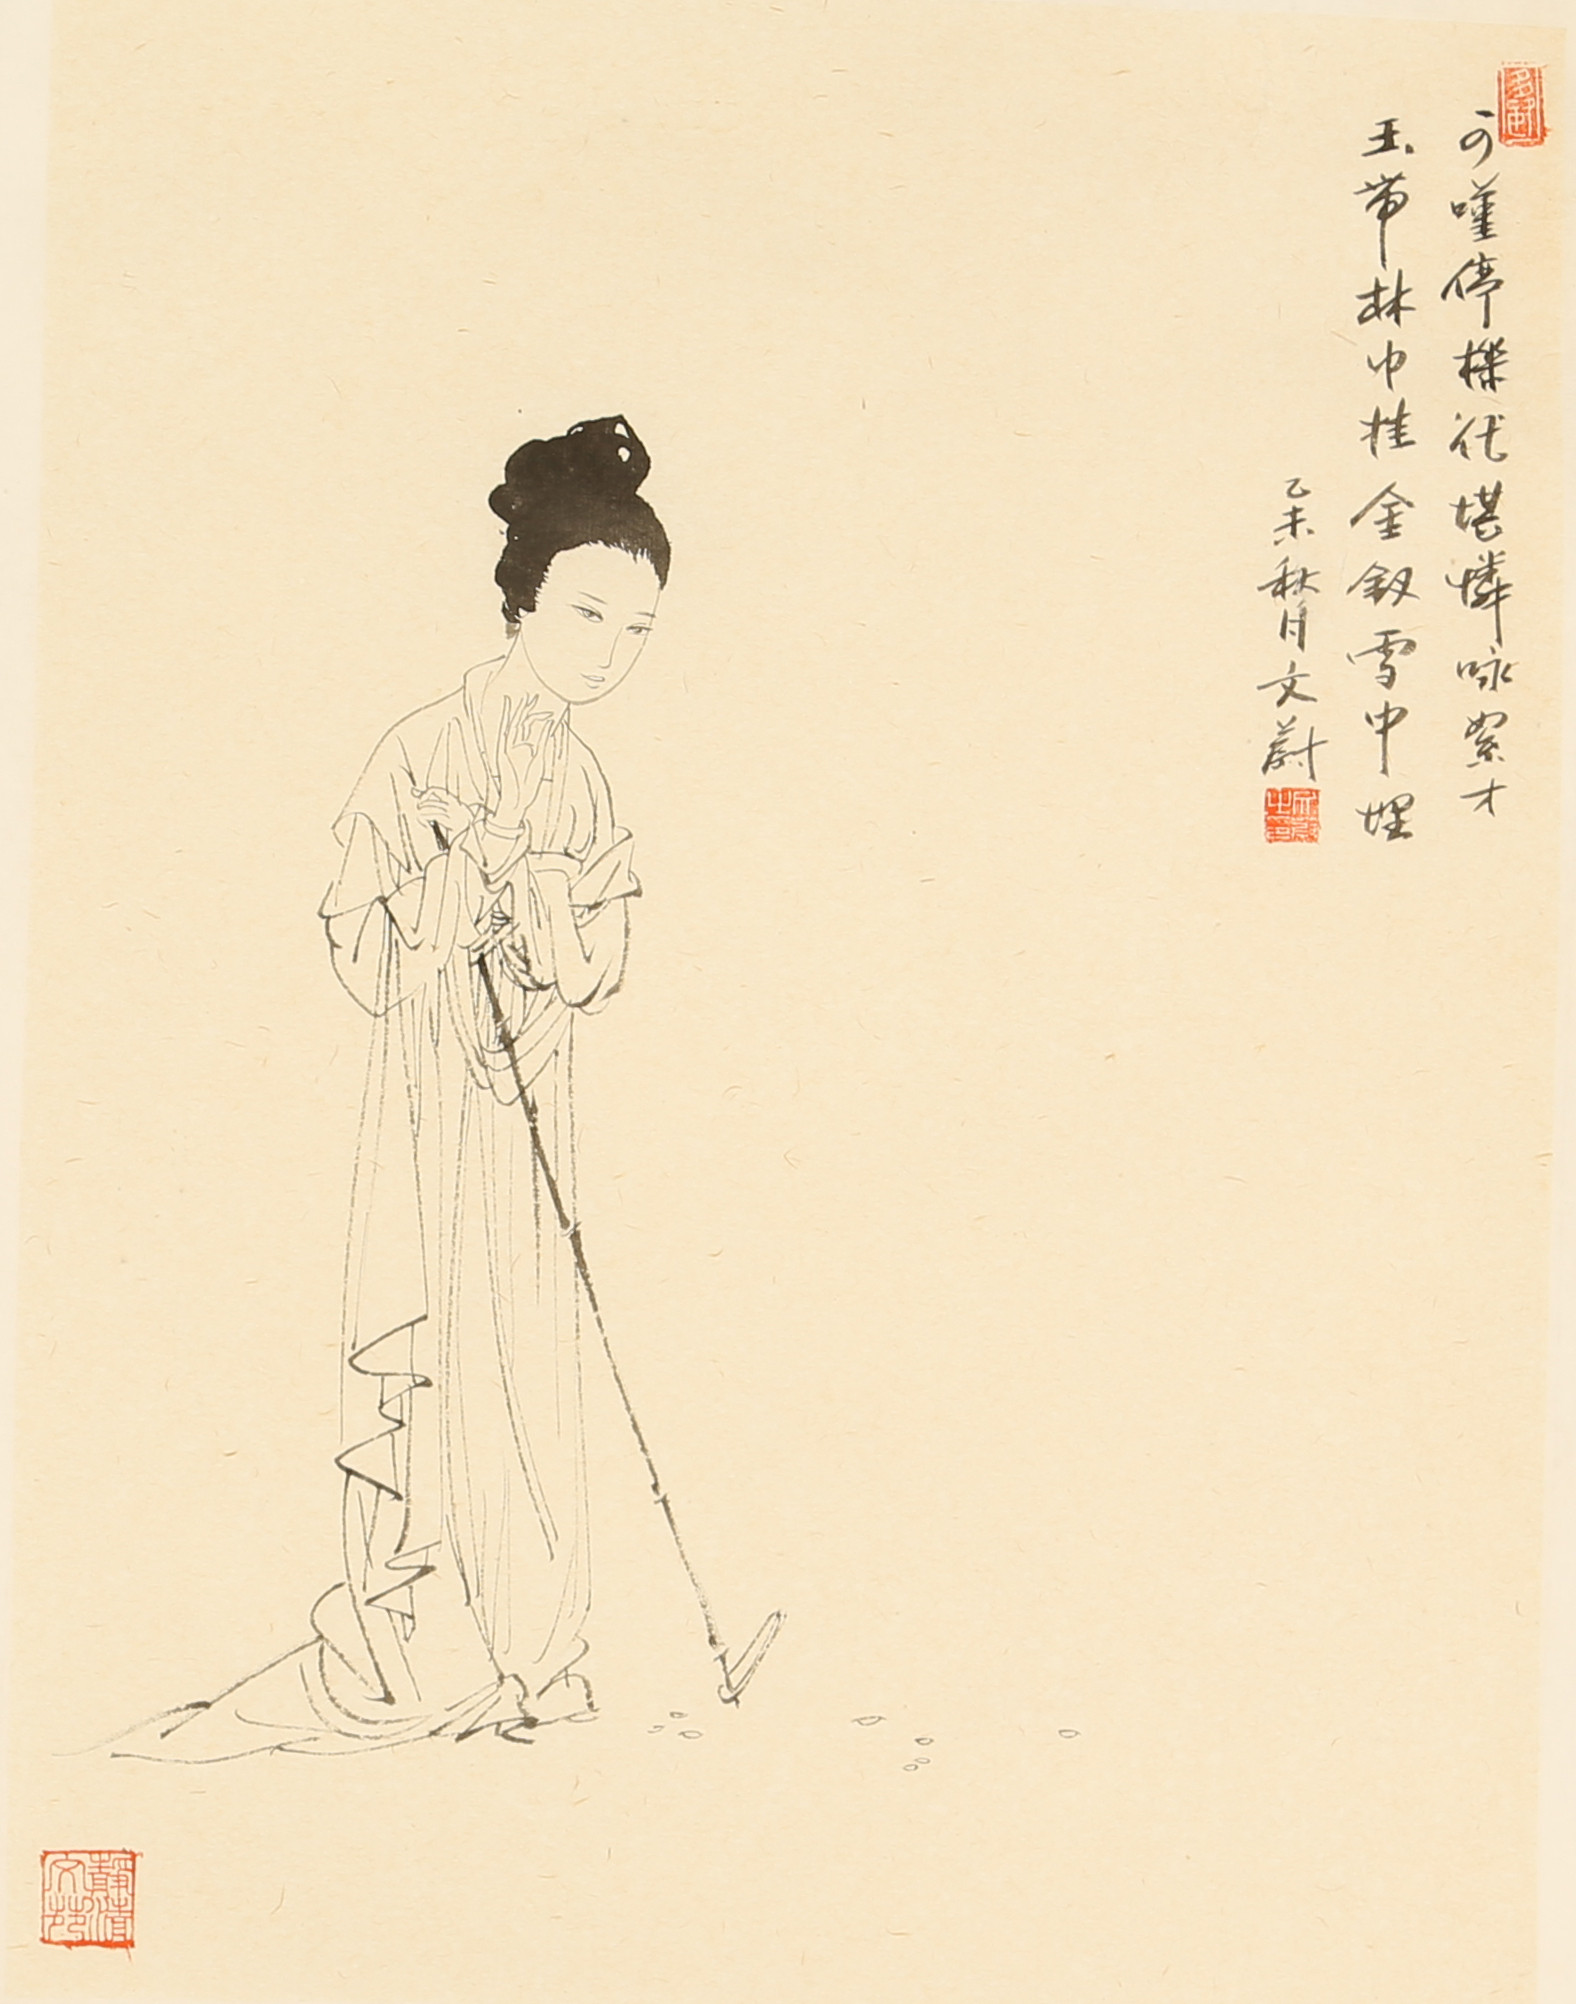 可嘆停機德堪憐咏絮才
玉带林中挂金釵雪中埋
乙未秋月文蔚